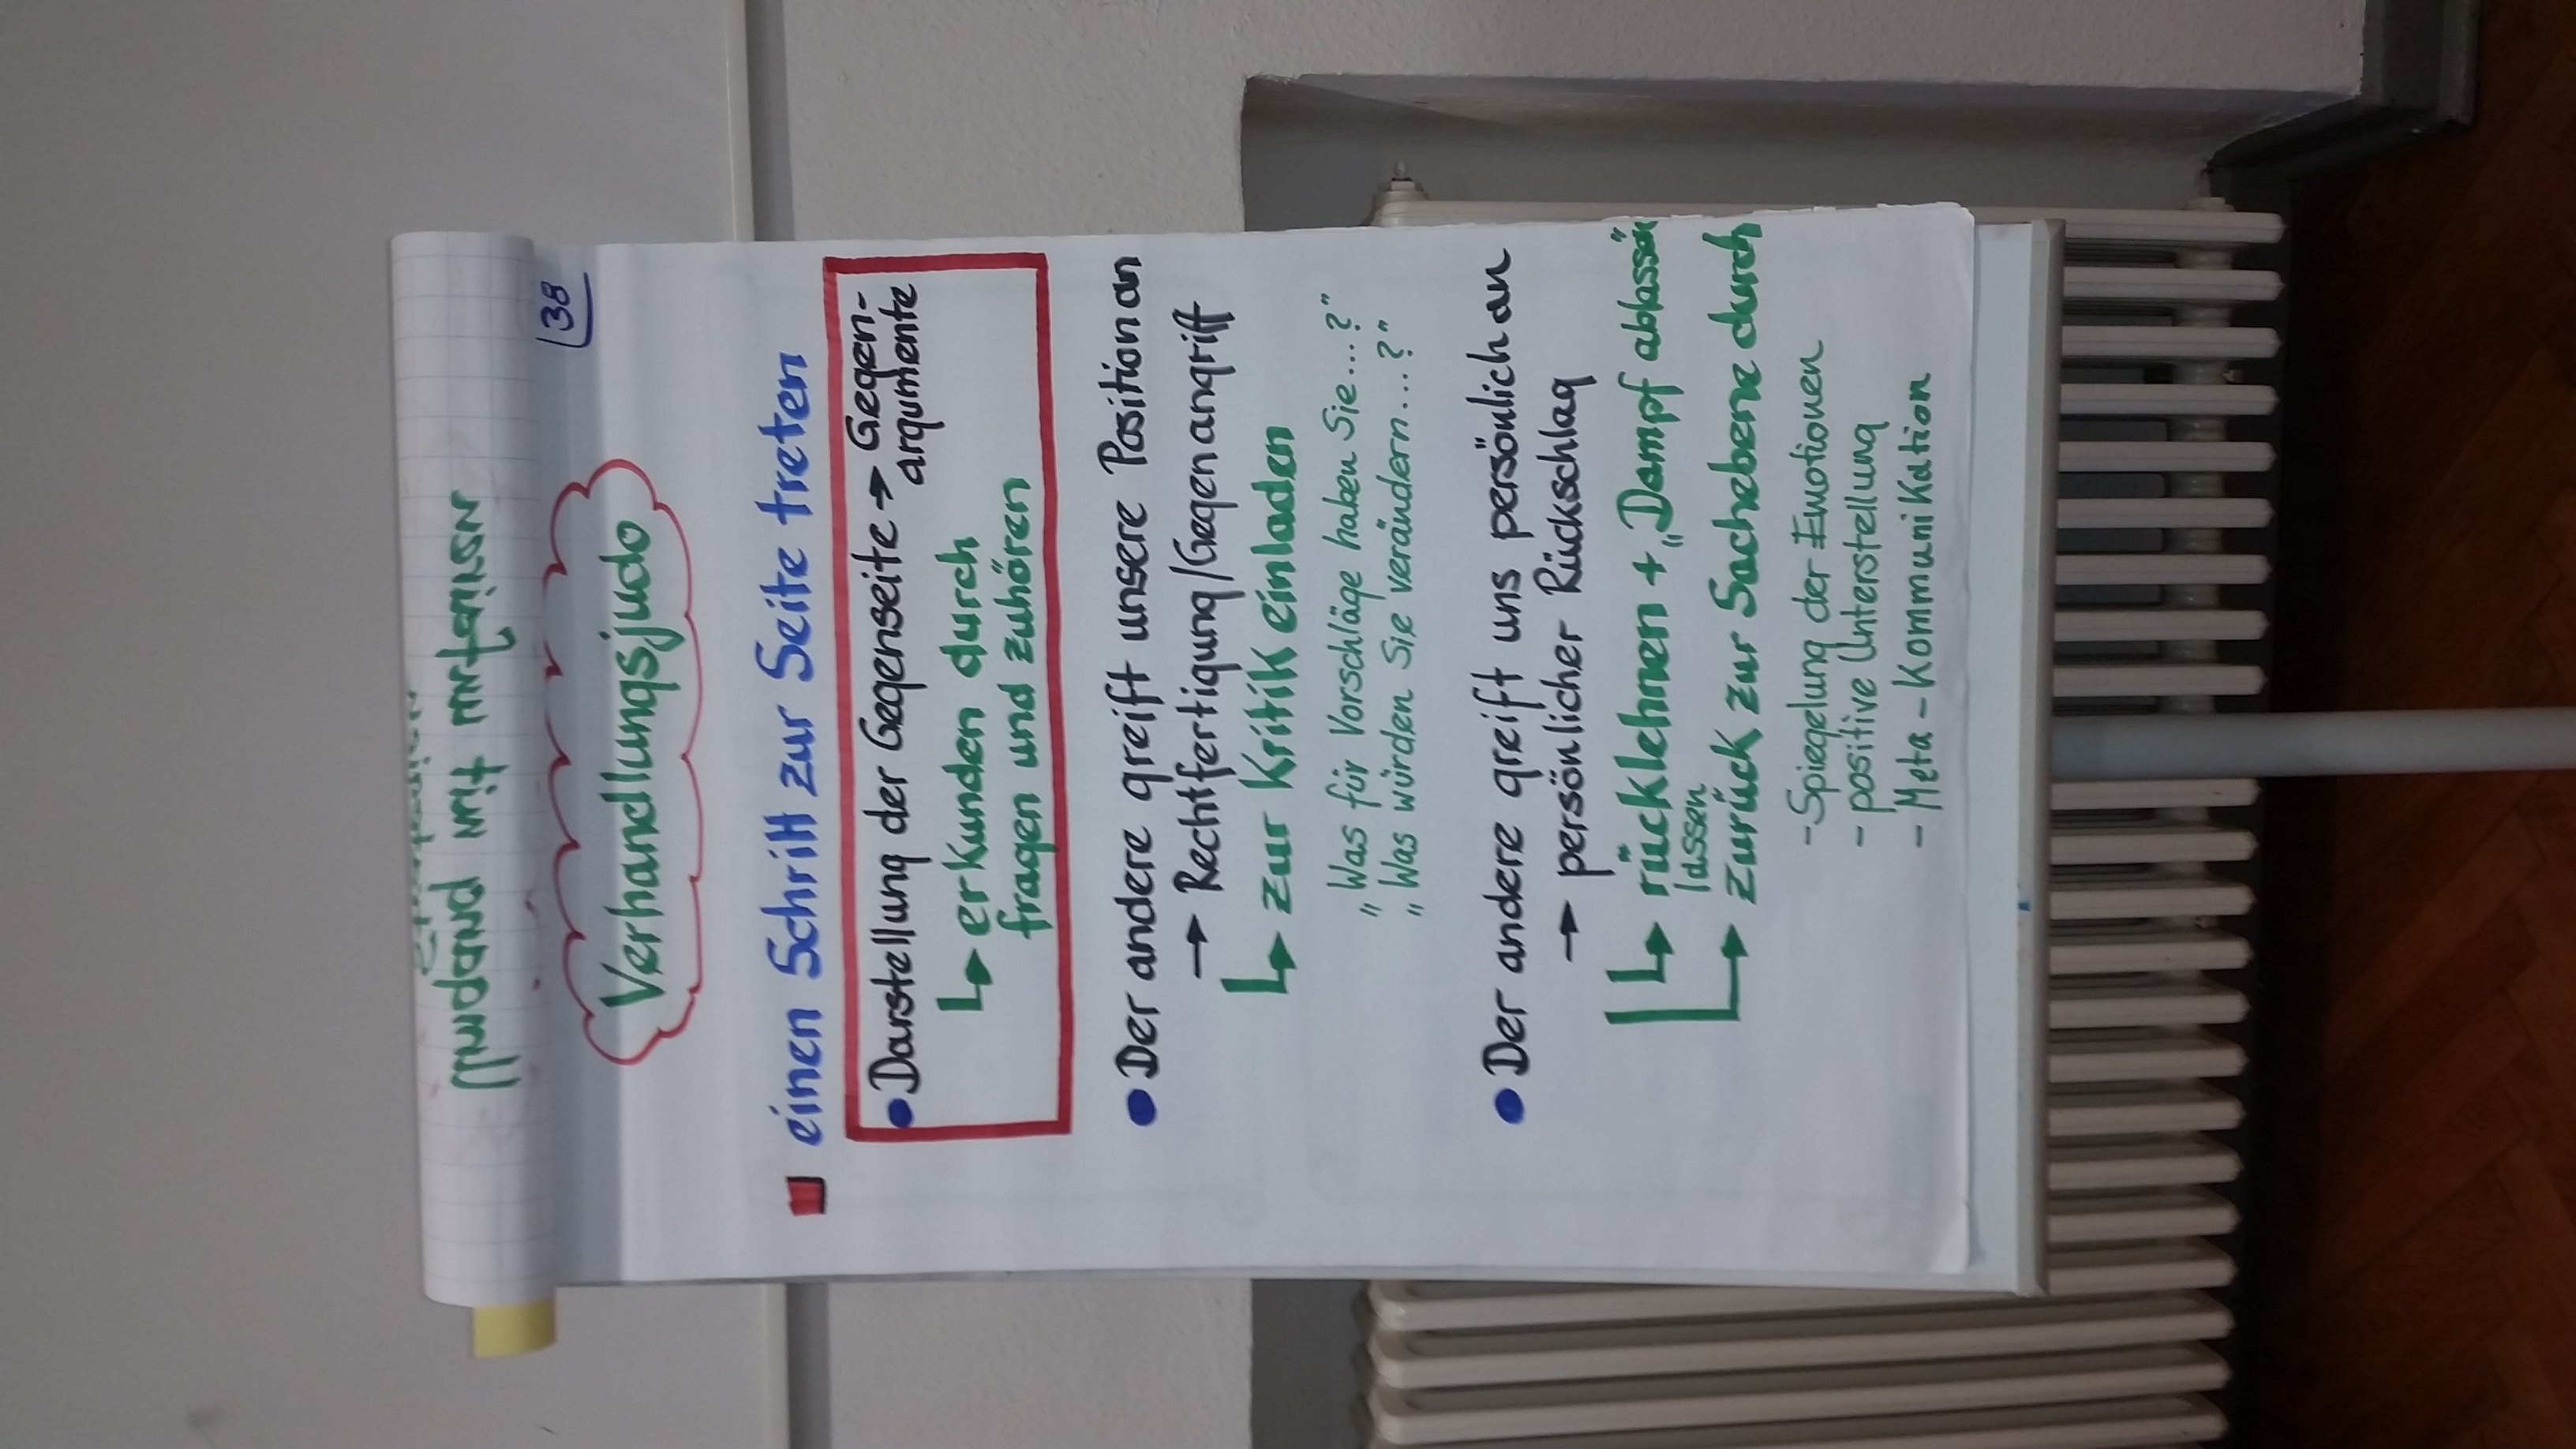 38
Verhandlungsjudo
einen Schritt zur Seite treten
Darstellung der Gegenseite → Gegen-
argumente
erkunden durch
fragen und zuhören
Der andere greift unsere Position an
→ Rechtfertigung/Gegenangriff
zur Kritik einladen
„Was für Vorschläge haben Sie...?"
„Was würden Sie verändern...?"
Der andere greift uns persönlich an
→ persönlicher Rückschlag
rücklehnen + „Dampf ablassen"
lassen
zurück zur Sachebene durch
- Spiegelung der Emotionen
- positive Unterstellung
- Meta-Kommunikation